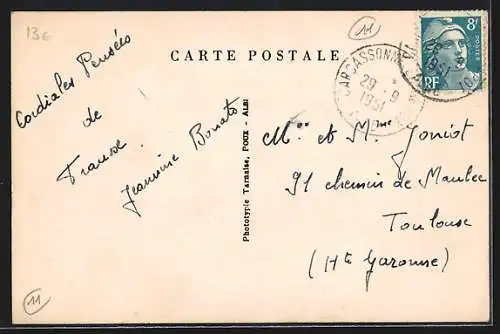 13€
11
CARTE POSTALE
8F
RF
CARCASSONNE
29 - 9
1951
Cordiales Pensées
de
Jeannine Bonato
Phototypie Tarnaise, POUX - ALBI
Mr et Mme
91 chemin de
Toulouse
(Hte Garonne)
11